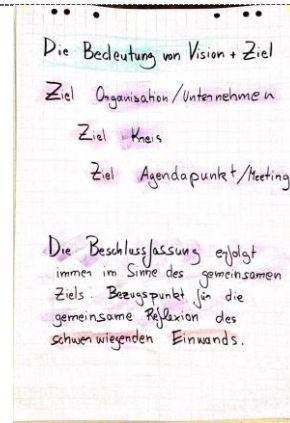 Die Bedeutung von Vision + Ziel
Ziel Organisation/Unternehmen
Ziel Kreis
Ziel Agendapunkt/Meeting
Die Beschlussfassung erfolgt
immer im Sinne des gemeinsamen
Ziels. Bezugspunkt für die
gemeinsame Reflexion des
schwerwiegenden Einwands.